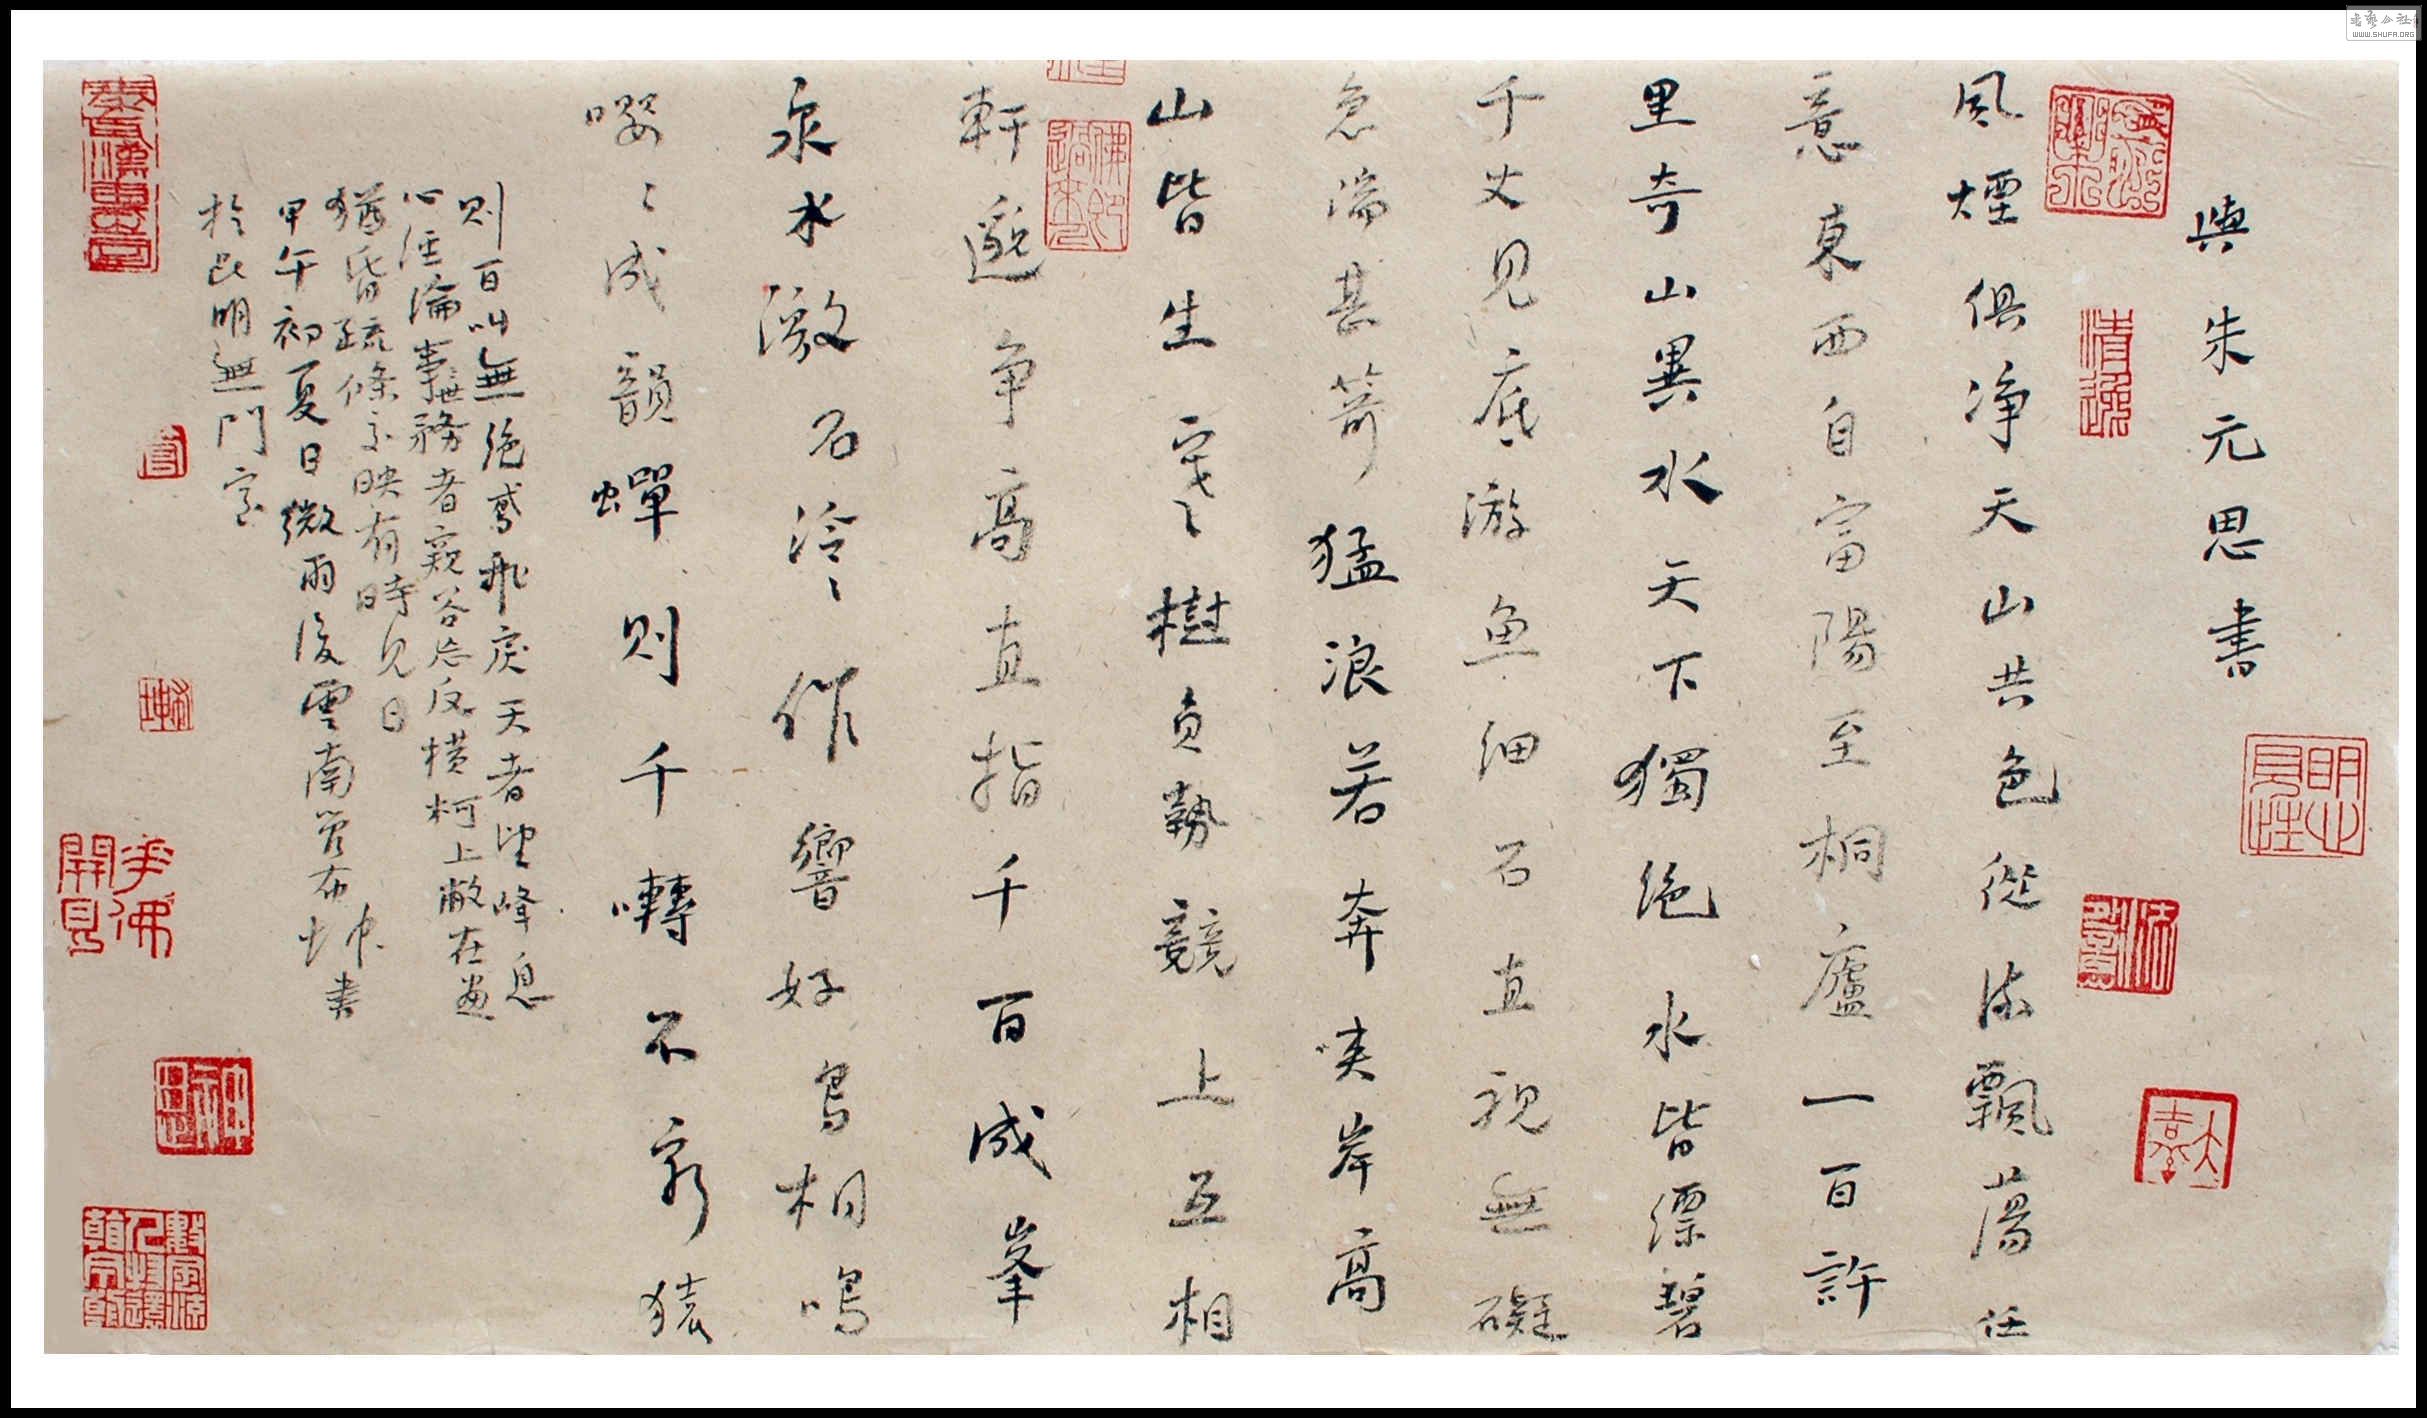 與朱元思書
風煙俱净天山共色從流飄蕩任
意東西自富陽至桐廬一百許
里奇山異水天下獨絶水皆縹碧
千丈見底游魚細石直視無礙
急湍甚箭猛浪若奔夹岸高
山皆生寒樹負勢競上互相
軒邈争高直指千百成峯
泉水激石泠泠作響好鳥相鳴
嚶嚶成韻蟬則千囀不窮猿
則百叫無絶鳶飛戾天者望峰息
心經綸事務者窺谷忘反横柯上蔽在晝
猶昏疏條交映有時見日
甲午初夏日微雨後雲南 布坤書
於昆明無門
清逸
明心見性
佛
花開見佛
書藝公社
WWW.SHUFA.ORG